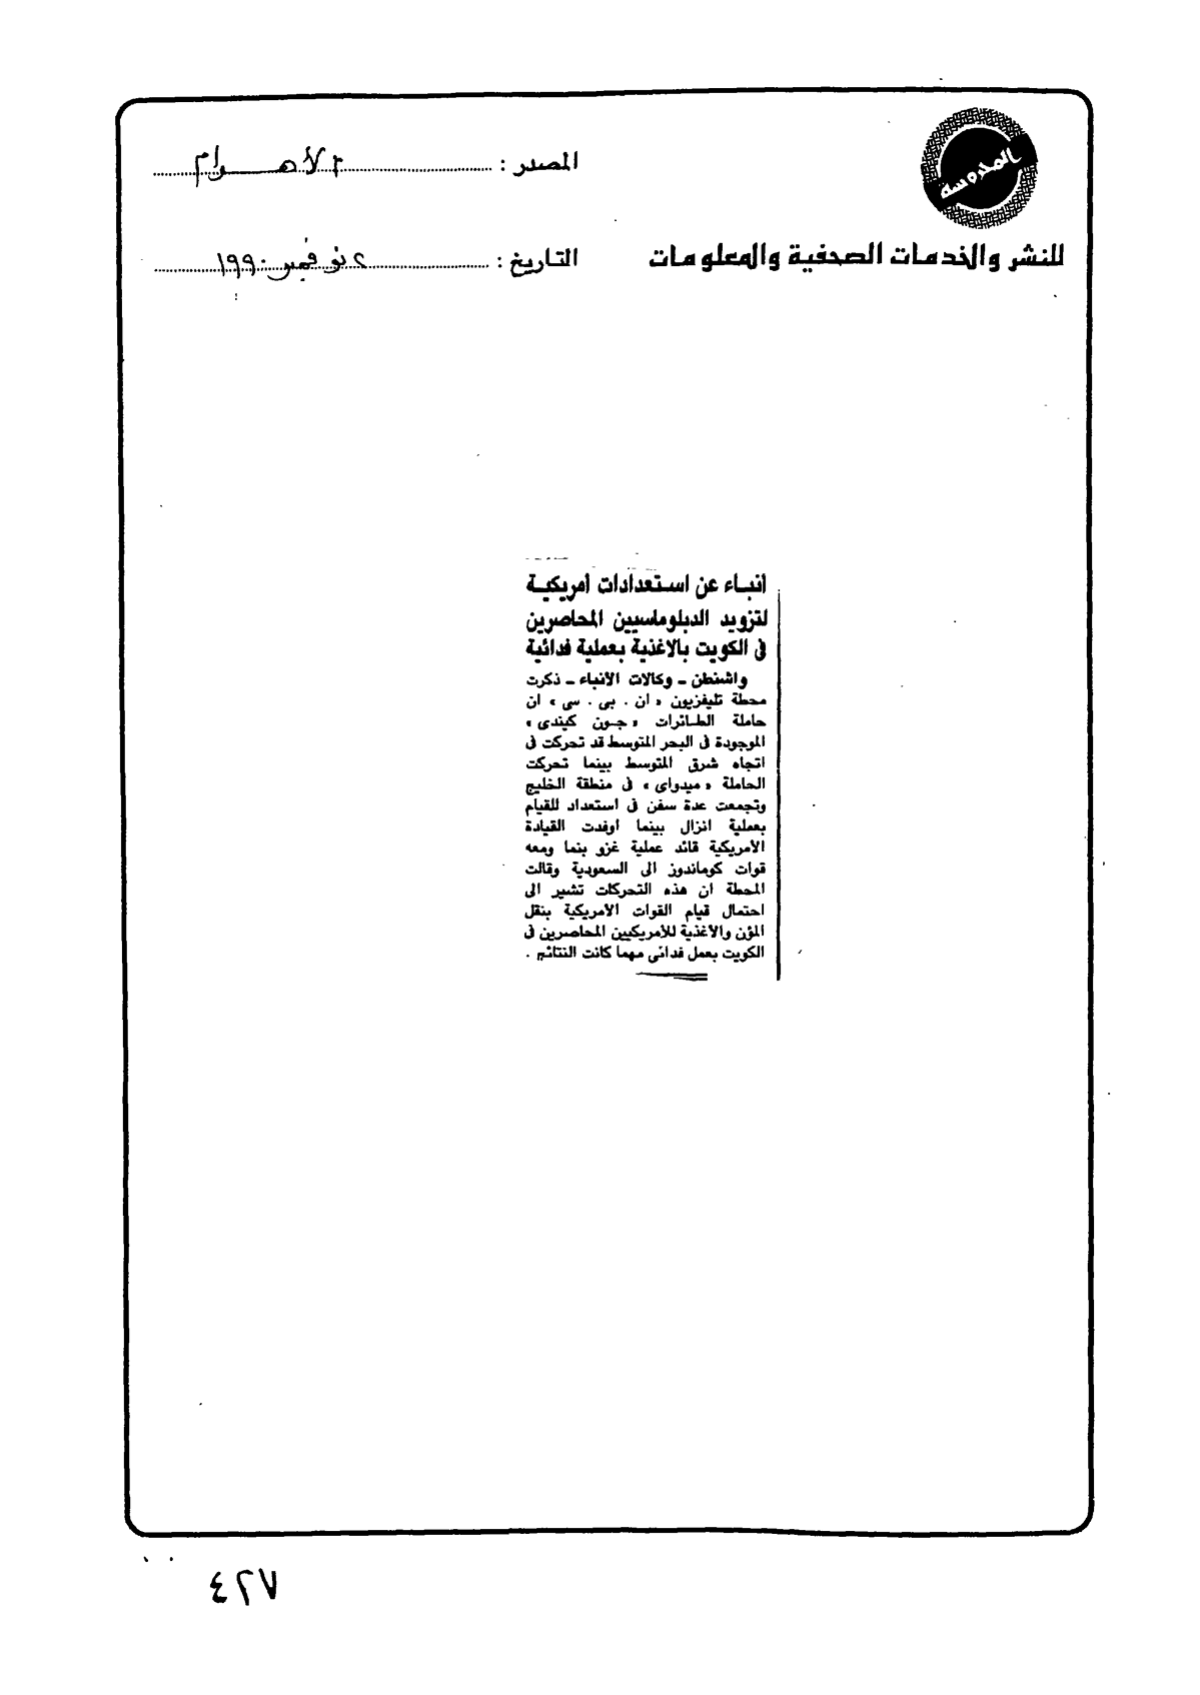 المحروسة
المصدر : الأهرام
للنشر والخدمات الصحفية والمعلومات
التاريخ : ٢ نوفمبر ١٩٩٠
انباء عن استعدادات امريكية
لتزويد الدبلوماسيين المحاصرين
فى الكويت بالاغذية بعملية فدائية
واشنطن - وكالات الأنباء - ذكرت
محطة تليفزيون « ان . بى . سى » ان
حاملة الطائرات « جون كيندى »
الموجودة فى البحر المتوسط قد تحركت فى
اتجاه شرق المتوسط بينما تحركت
الحاملة « ميدواى » فى منطقة الخليج
وتجمعت عدة سفن فى استعداد للقيام
بعملية انزال بينما اوفدت القيادة
الأمريكية قائد عملية غزو بنما ومعه
قوات كوماندوز الى السعودية وقالت
المحطة ان هذه التحركات تشير الى
احتمال قيام القوات الأمريكية بنقل
المؤن والأغذية للأمريكيين المحاصرين فى
الكويت بعمل فدائى مهما كانت النتائج .
٤٢٧